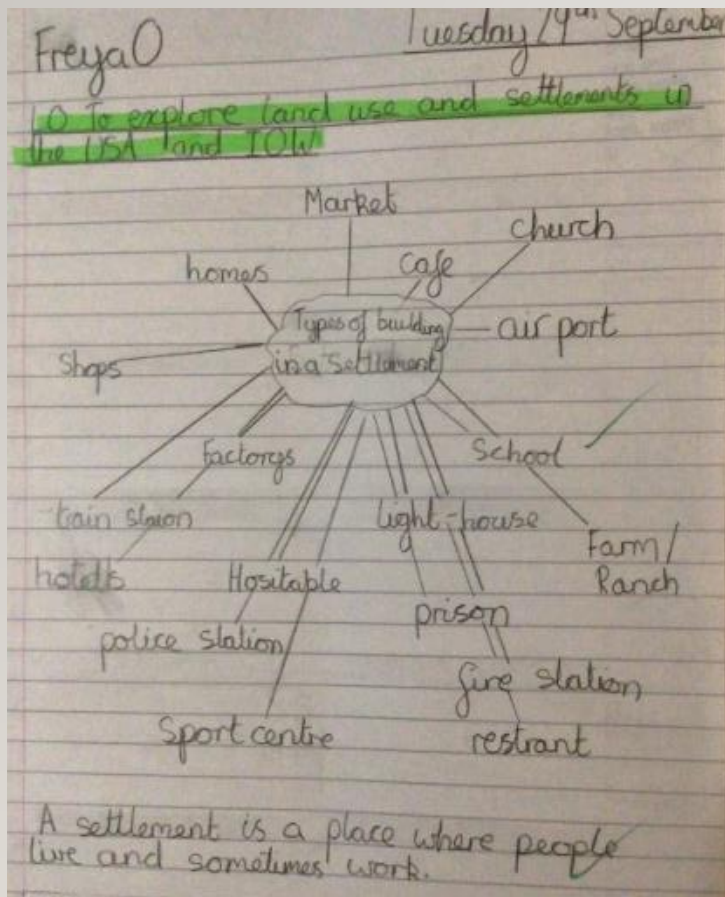 Freya O
Tuesday 29th September
LO To explore land use and settlements in
the USA and IOW
Market
church
cafe
homes
Types of building
in a Settlement
airport
Shops
Factorys
School
train staion
light-house
Farm/
Ranch
hotells
Hositable
prison
police station
fire station
Sport centre
restrant
A settlement is a place where people
live and sometimes work.